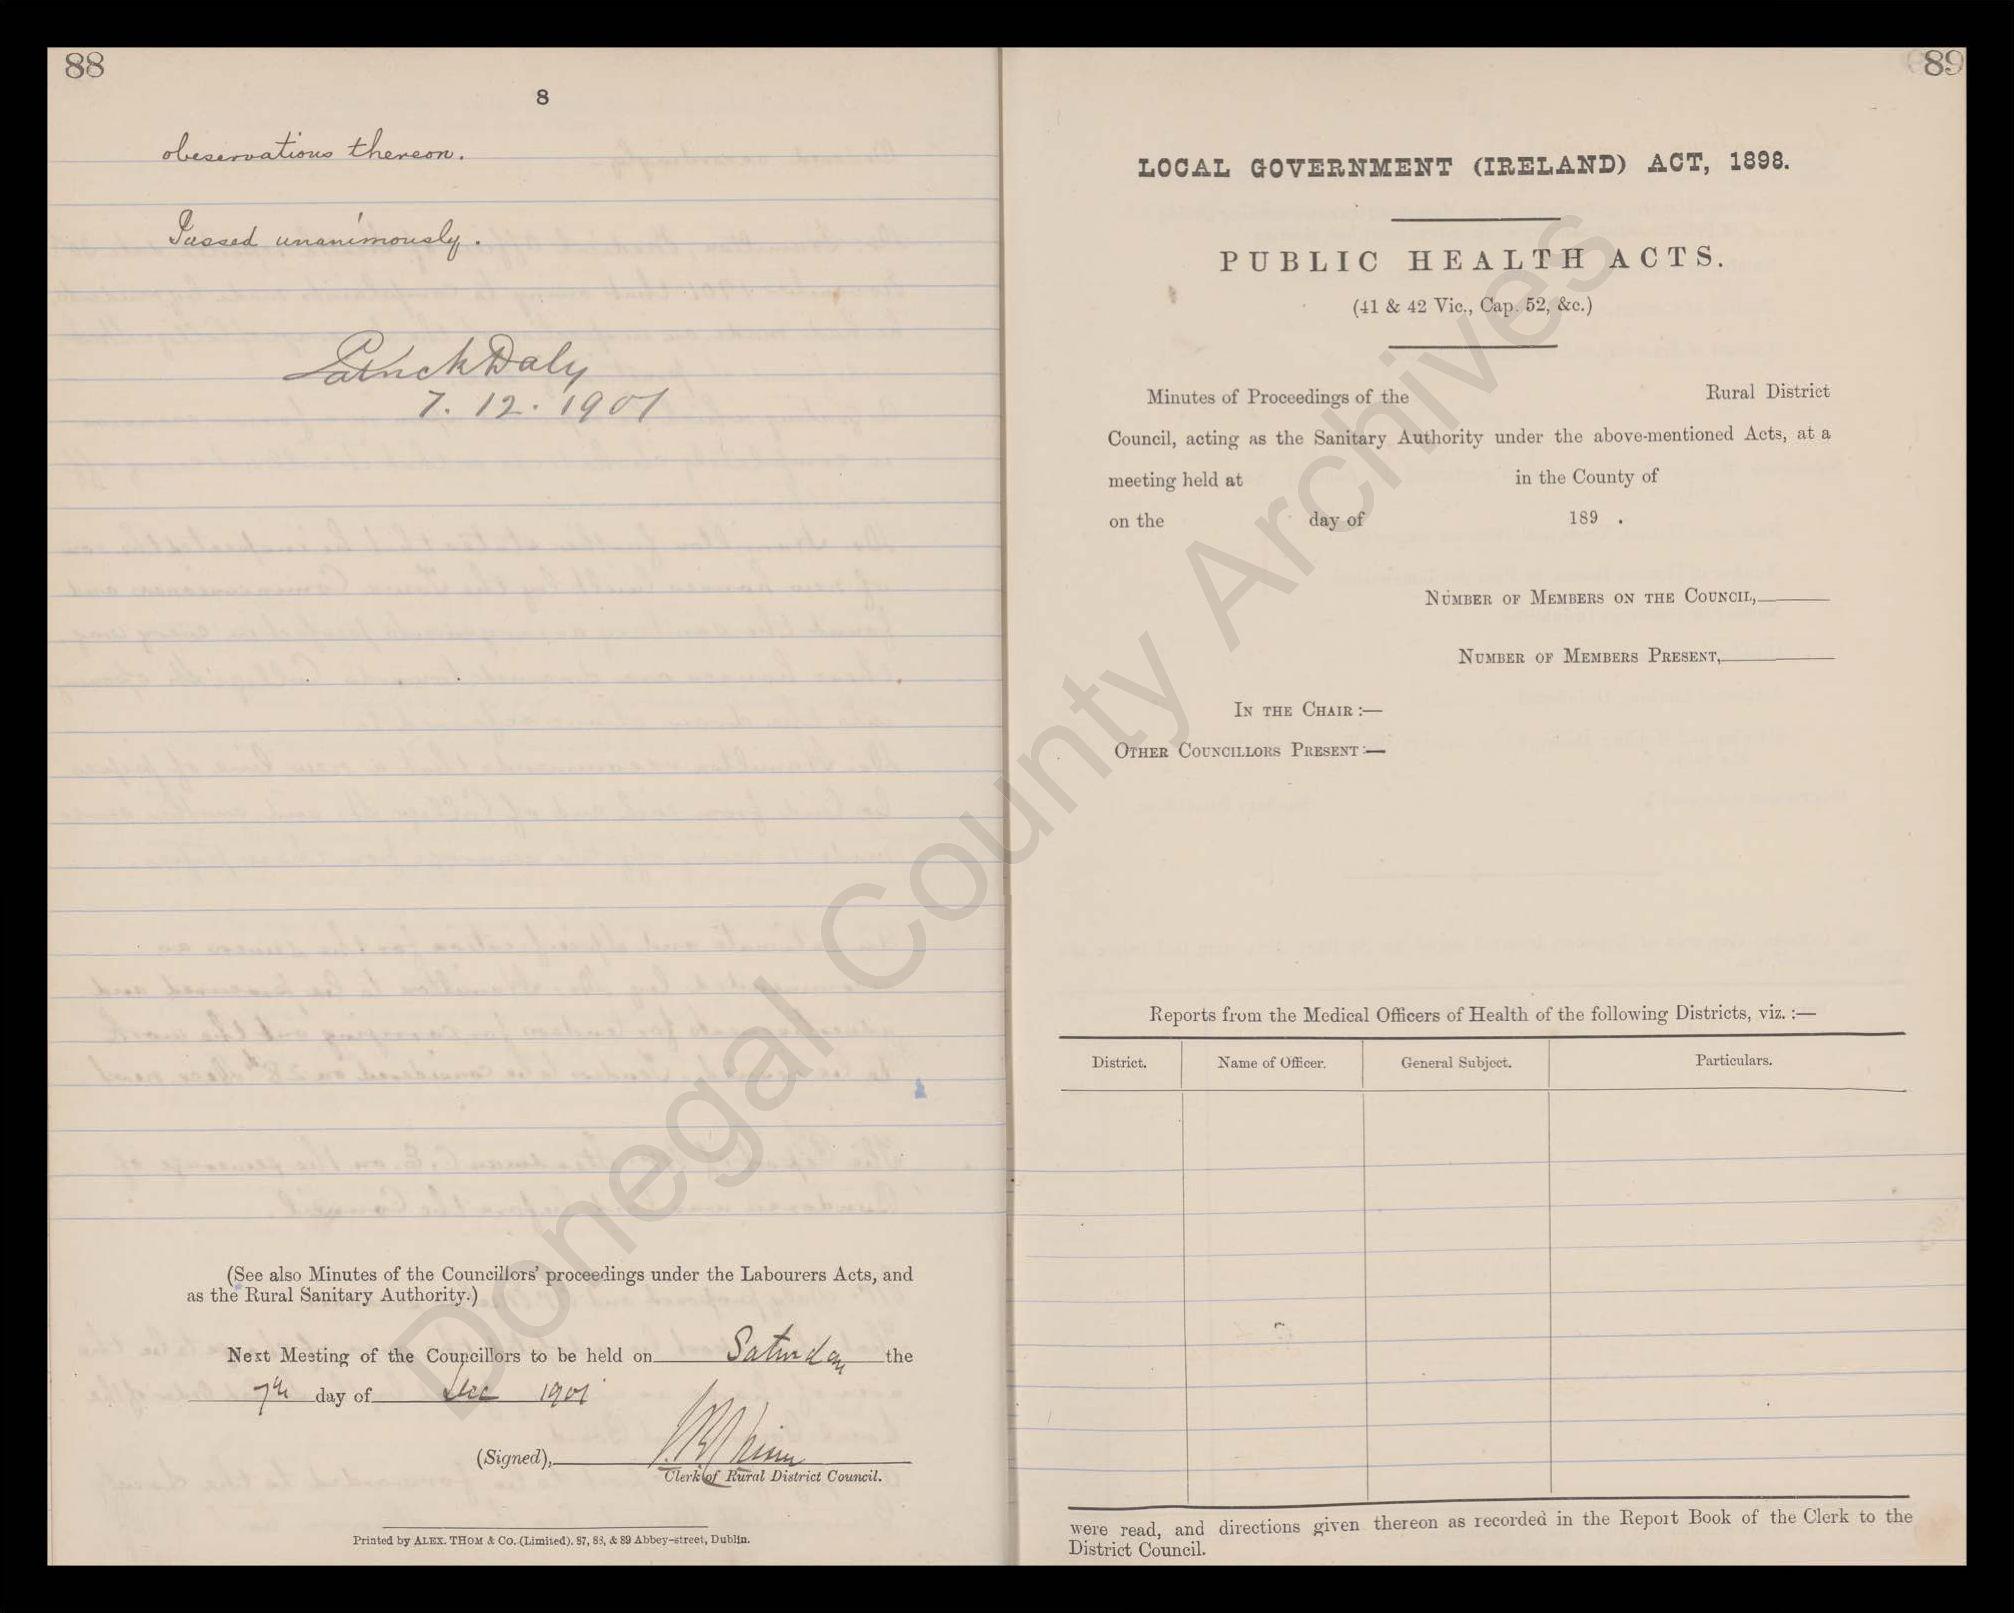 88
8
obeservations thereon.
Passed unanimously.
Patrick Daly
7. 12. 1901
(See also Minutes of the Councillors' proceedings under the Labourers Acts, and
as the Rural Sanitary Authority.)
Next Meeting of the Councillors to be held on Saturday the
7th day of Dec 1901
(Signed),
Clerk of Rural District Council.
Printed by ALEX. THOM & Co. (Limited), 87, 88, & 89 Abbey-street, Dublin.
89
LOCAL GOVERNMENT (IRELAND) ACT, 1898.
PUBLIC HEALTH ACTS.
(41 & 42 Vic., Cap. 52, &c.)
Minutes of Proceedings of the Rural District
Council, acting as the Sanitary Authority under the above-mentioned Acts, at a
meeting held at in the County of
on the day of 189 .
NUMBER OF MEMBERS ON THE COUNCIL,
NUMBER OF MEMBERS PRESENT,
IN THE CHAIR :—
OTHER COUNCILLORS PRESENT :—
Reports from the Medical Officers of Health of the following Districts, viz. :—
District. Name of Officer. General Subject. Particulars.
were read, and directions given thereon as recorded in the Report Book of the Clerk to the
District Council.
Donegal County Archives